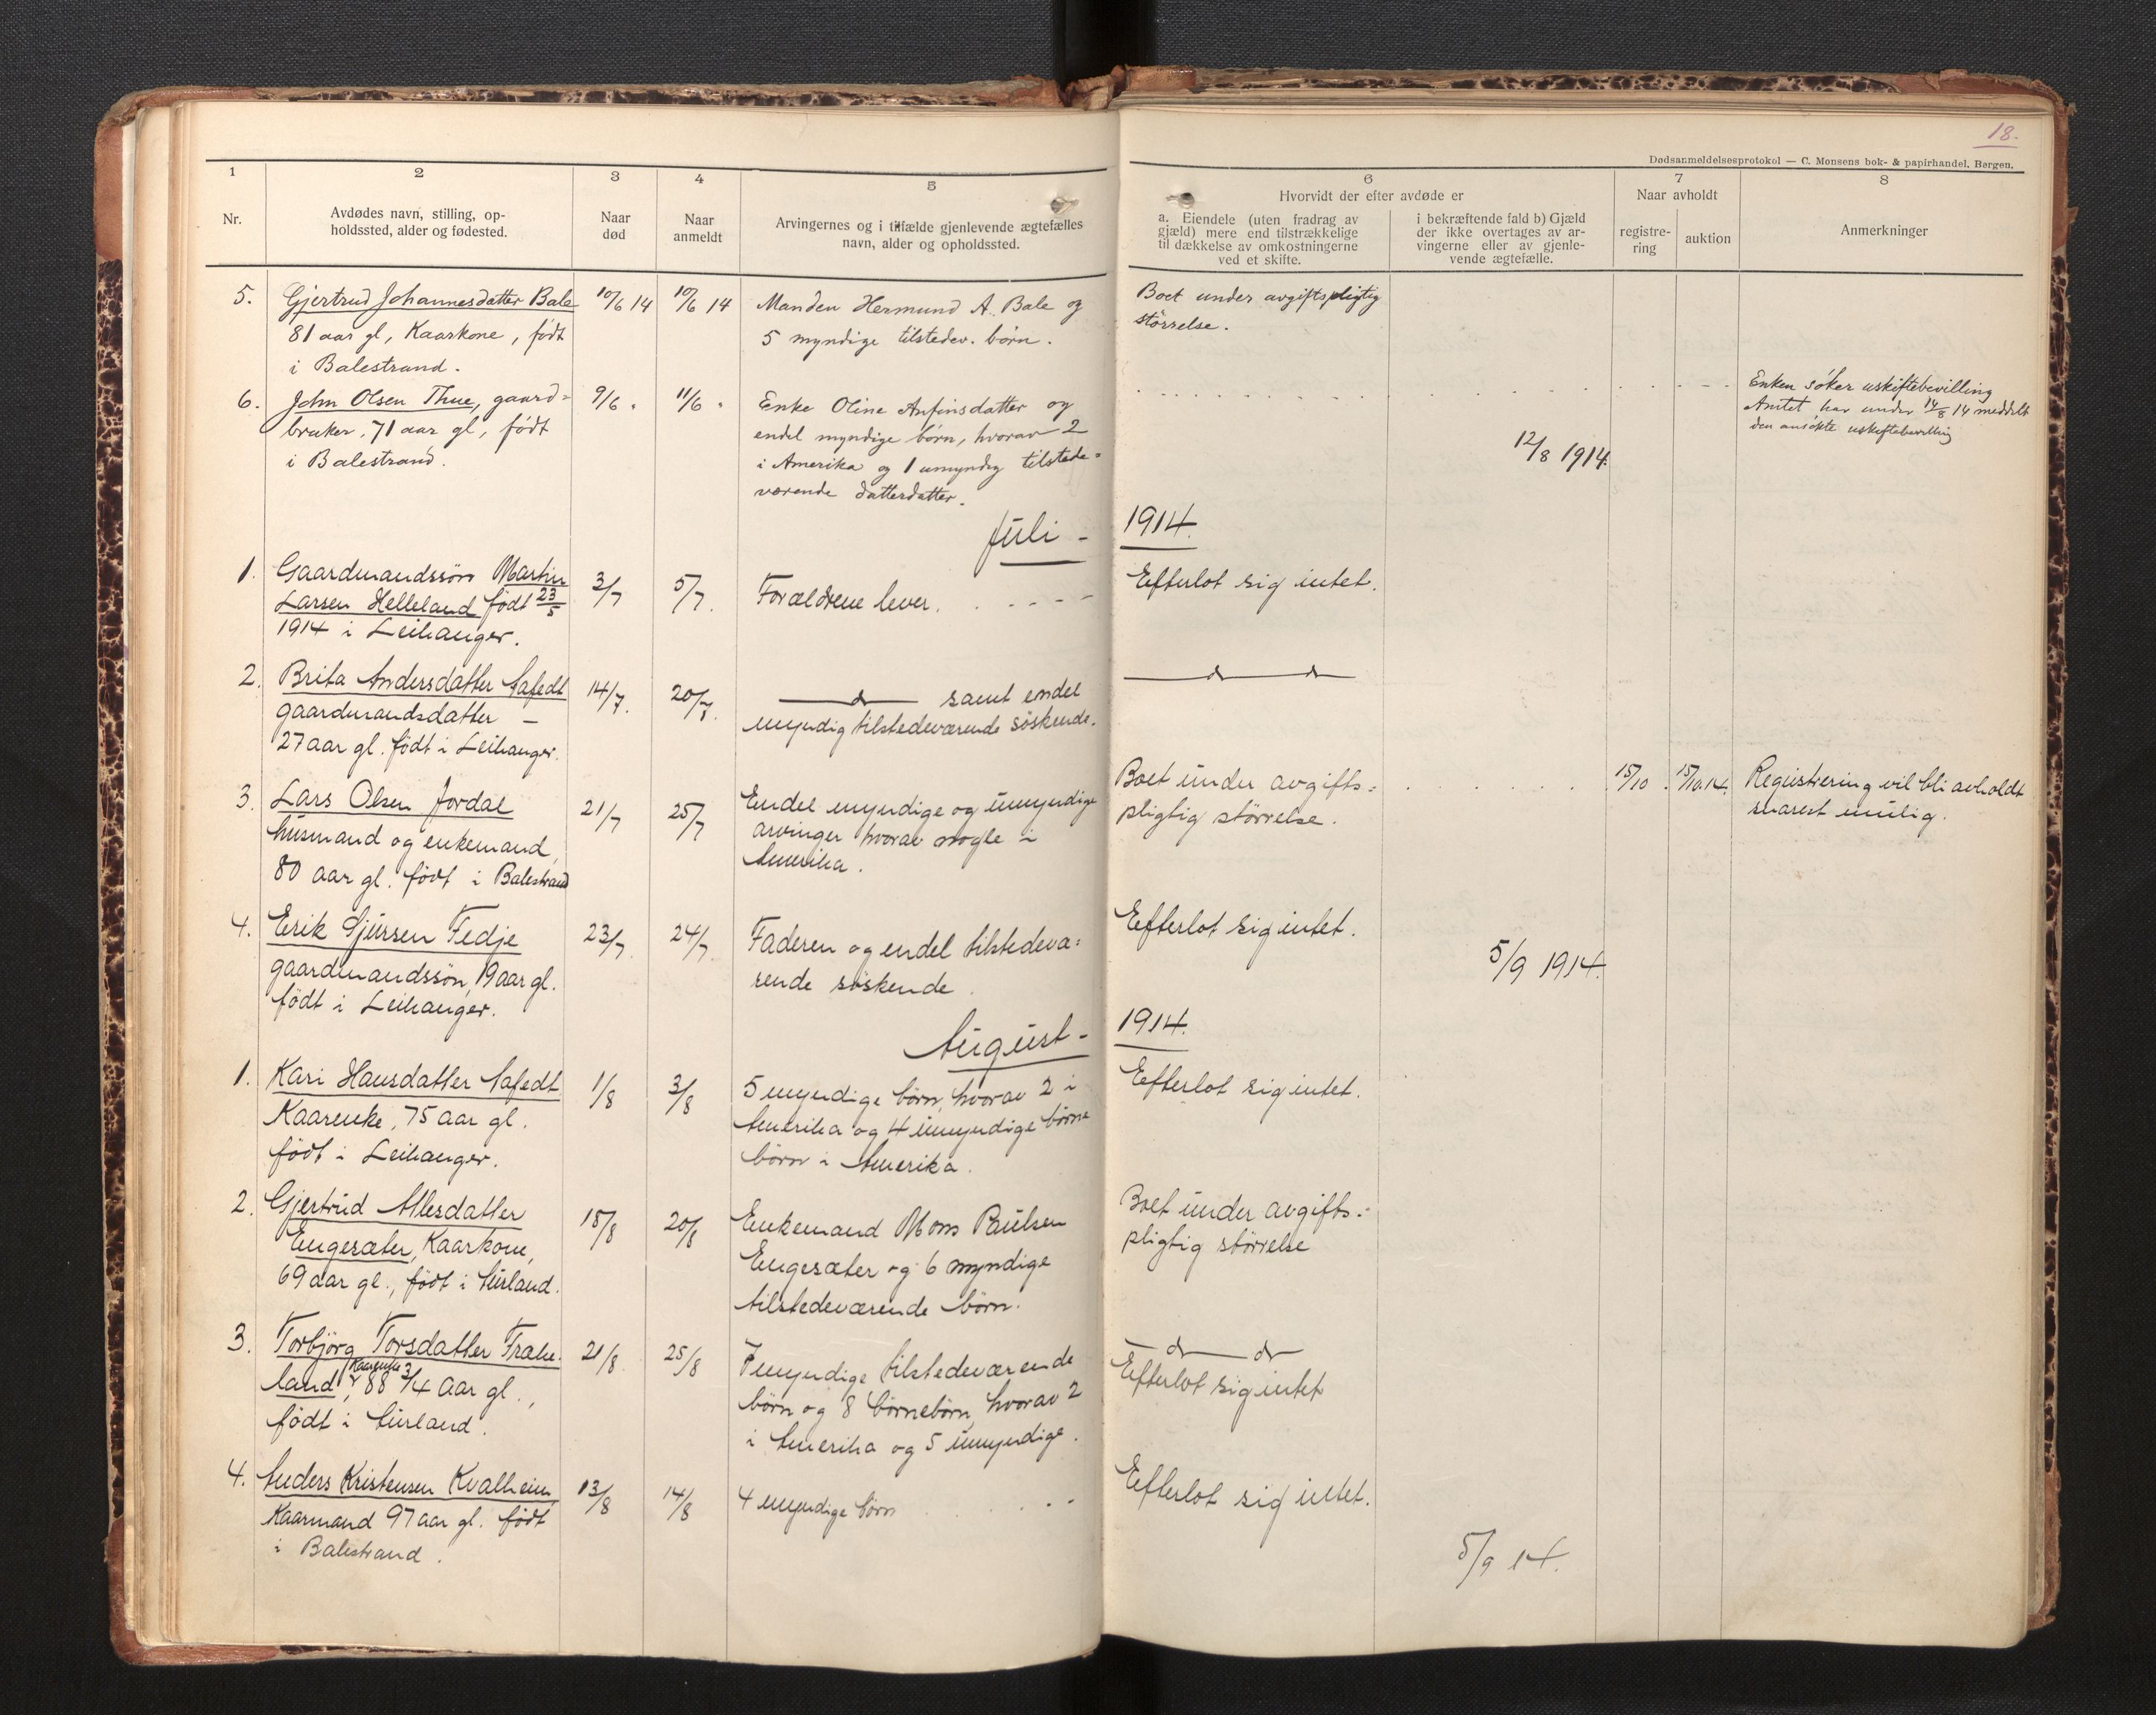 18.
Dødsanmeldelsesprotokol — C. Monsens bok- & papirhandel, Bergen.
1
2
3
4
5
6
7
8
Nr.
Avdødes navn, stilling, op-
holdssted, alder og fødested.
Naar
død
Naar
anmeldt
Arvingernes og i tilfælde gjenlevende ægtefælles
navn, alder og opholdssted.
Hvorvidt der efter avdøde er
a. Eiendele (uten fradrag av
gjæld) mere end tilstrækkelige
til dækkelse av omkostningerne
ved et skifte.
i bekræftende fald b) Gjæld
der ikke overtages av ar-
vingerne eller av gjenle-
vende ægtefælle.
Naar avholdt
registre-
ring
auktion
Anmerkninger
5. Gjertrud Johannesdatter Bale
81 aar gl, Kaarkone, født
i Balestrand.
10/6 14
10/6 14
Manden Hermund A. Bale og
5 myndige tilstedev. børn.
Boet under avgiftspligtig
størrelse.
6. John Olsen Thue, gaard=
bruker, 71 aar gl, født
i Balestrand.
9/6 "
11/6 "
Enke Oline Anfinsdatter og
endel myndige børn, hvorav 2
i Amerika og 1 umyndig tilstede=
værende datterdatter.
Enken søker uskiftebevilling
Amtet har under 14/8 14 meddelt
den ansøkte uskiftebevilling
12/8 1914.
Juli - 1914.
1. Gaardmandssøn Martin
Larsen Helleland født 23/5
1914 i Leikanger.
3/7
5/7.
Forældrene lever.
Efterlot sig intet.
2. Brita Andersdatter Aafedt
gaardmandsdatter —
27 aar gl. født i Leikanger.
14/7.
20/7.
—d— samt endel
myndig tilstedeværende søskende.
—d—d—
3. Lars Olsen Jordal
husmand og enkemand,
80 aar gl. født i Balestrand
21/7
25/7
Endel myndige og umyndige
arvinger hvorav nogle i
Amerika.
Boet under avgifts=
pligtig størrelse.
15/10
15/10.14.
Registrering vil bli avholdt
snarest mulig.
4. Erik Sjursen Fedje
gaardmandssøn, 19 aar gl.
født i Leikanger.
23/7
24/7
Faderen og endel tilstedevæ=
rende søskende.
Efterlot sig intet.
5/9 1914.
August - 1914.
1. Kari Hansdatter Aafedt
Kaarenke, 75 aar gl.
født i Leikanger.
1/8
3/8
5 myndige børn, hvorav 2 i
Amerika og 4 umyndige børne
børn i Amerika.
Efterlot sig intet.
2. Gjertrud Atlesdatter
Engesæter, Kaarkone,
69 aar gl., født i Aurland.
18/8
20/8
Enkemand Mons Paulsen
Engesæter og 6 myndige
tilstedeværende børn.
Boet under avgifts=
pligtig størrelse
3. Torbjörg Torsdatter Fra
land, Kaarenke 88 3/4 aar gl.,
født i Aurland.
21/8
25/8
7 myndige tilstedeværende
børn og 8 børnebørn, hvorav 2
i Amerika og 5 umyndige.
—d—d—
Efterlot sig intet
4. Anders Kristensen Kvalheim,
Kaarmand 97 aar gl. født
i Balestrand.
13/8
14/8
4 myndige børn
Efterlot sig intet.
5/9 14.